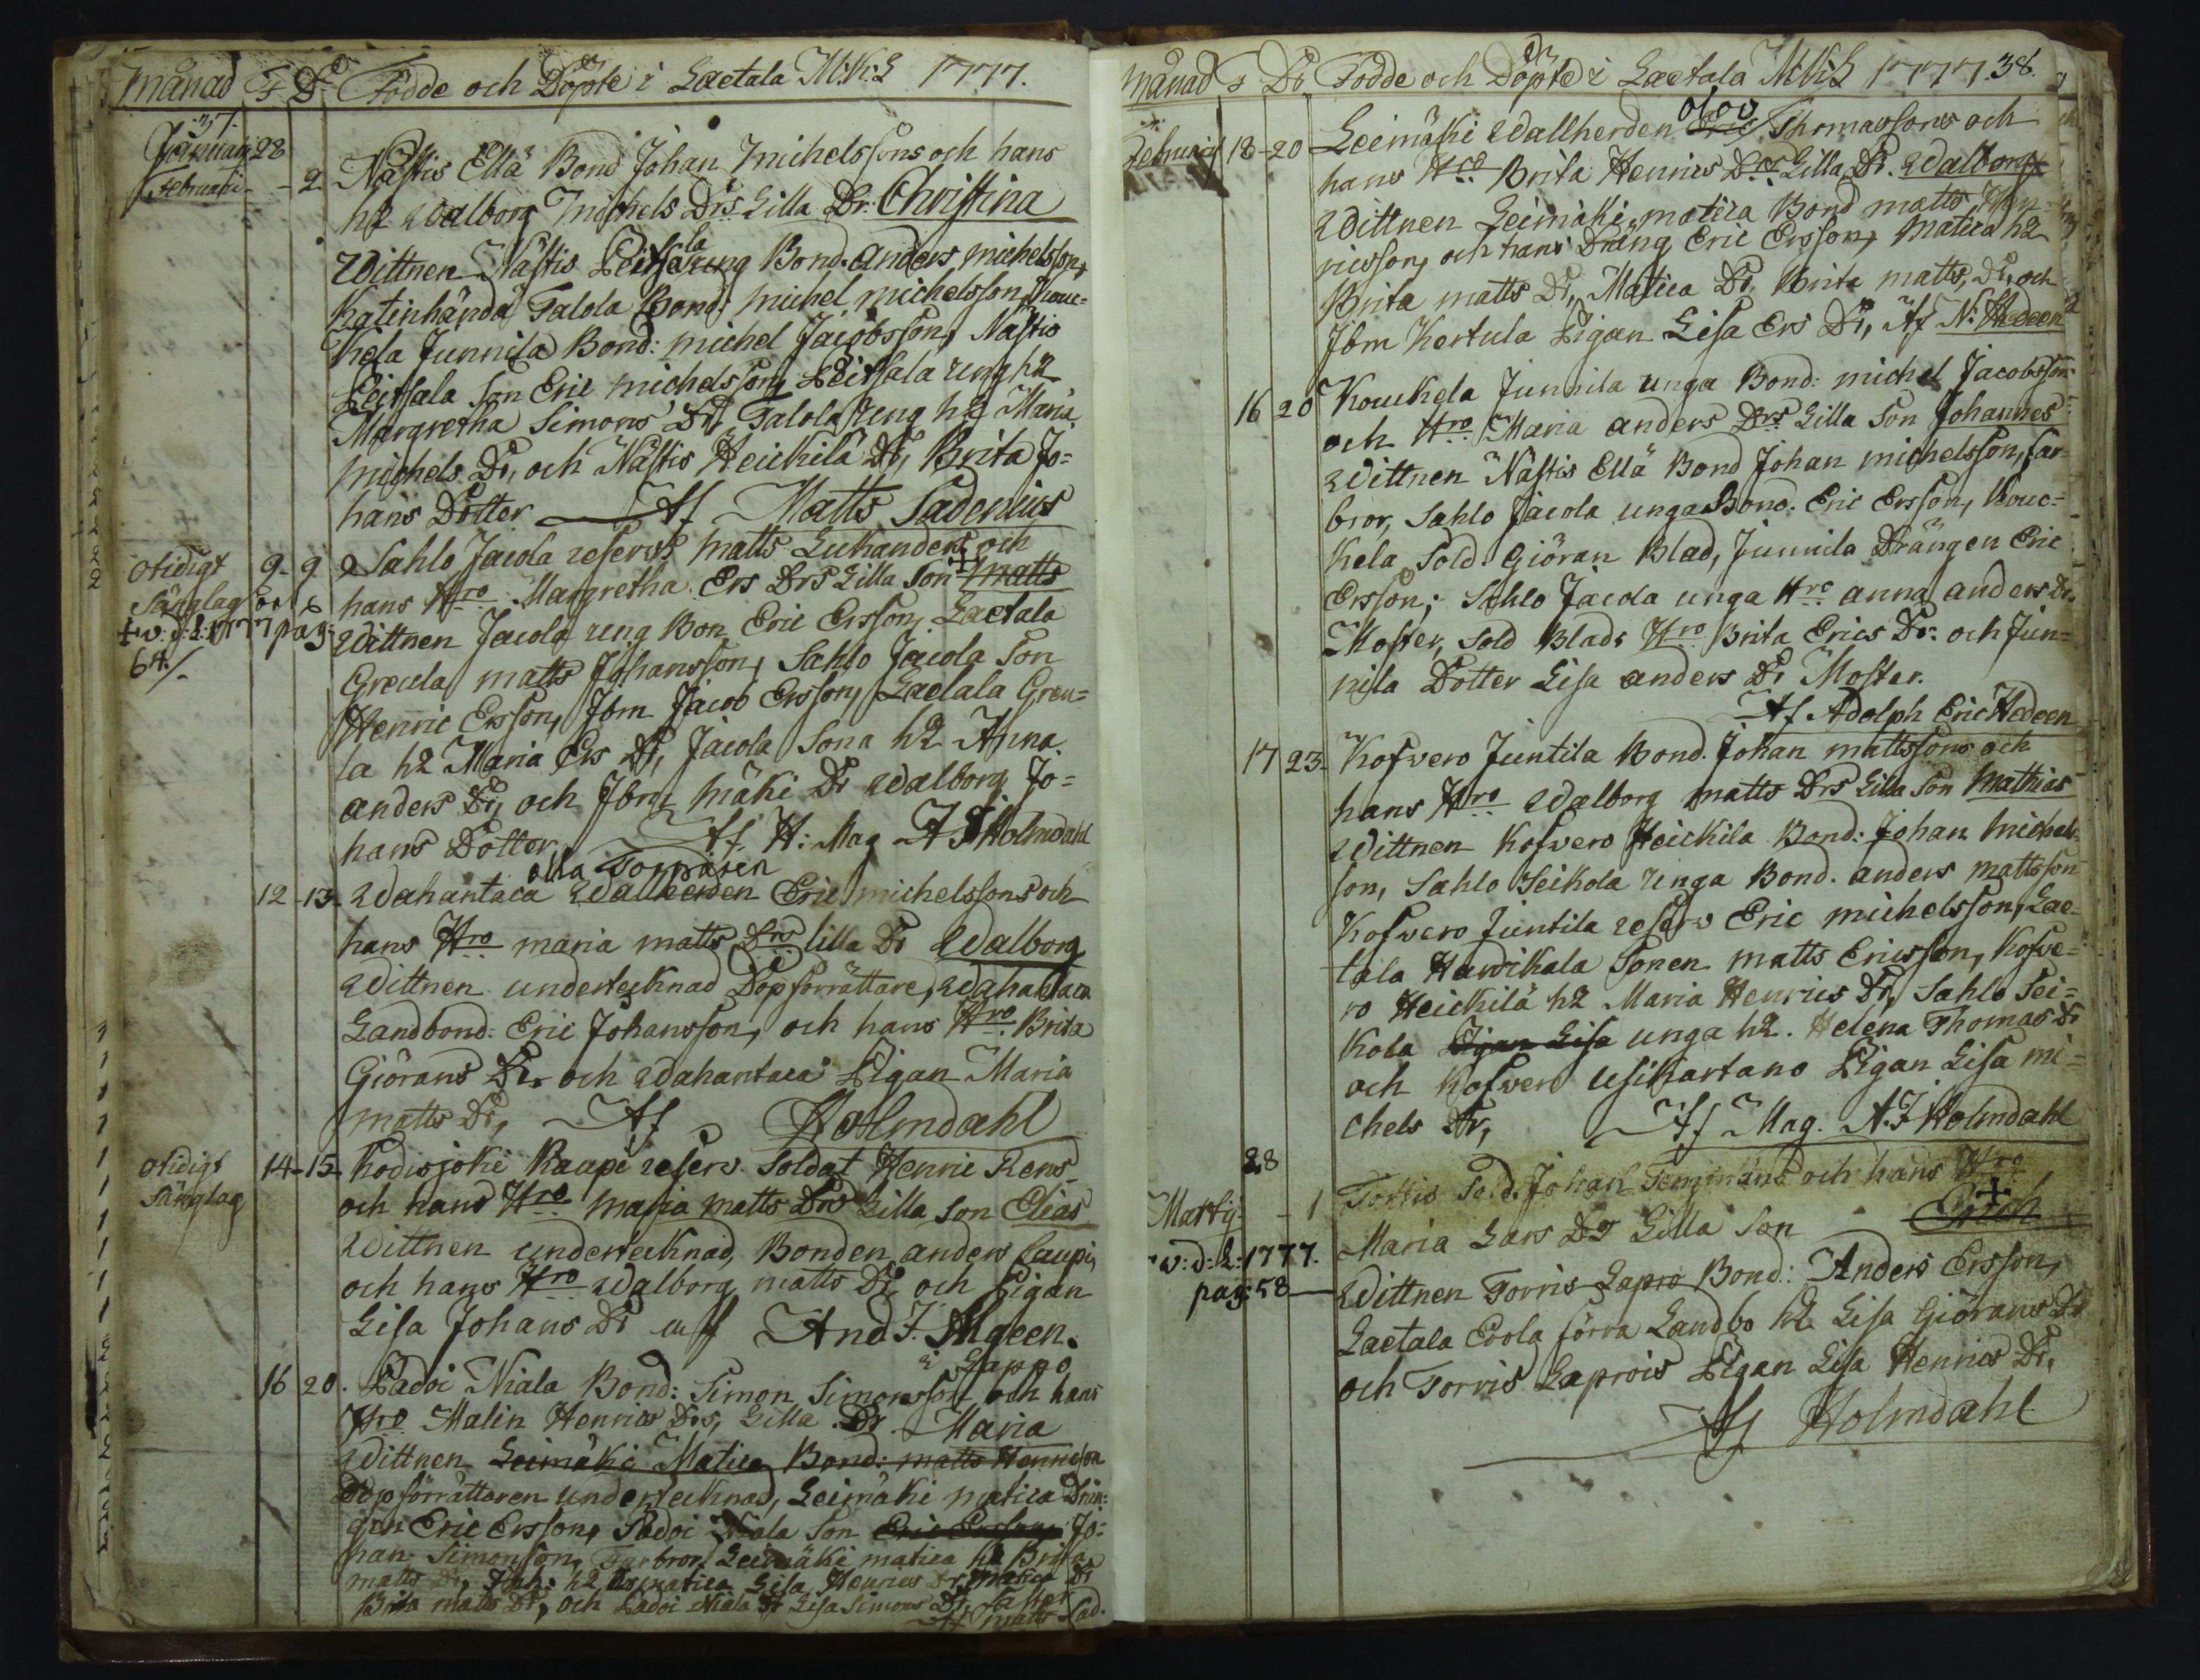 Månad F Dr Födde och Döpte i Laetala M:K:L 1777.
37.
Januarij 28
Februarii - - 2. Nästis Ellä Bond Johan Michelssons och hans
h2 Walborg Michels Drs Lilla Dr: Christina
Wittnen Nästis Leitsala ung Bond. Anders Michelsson,
Katinhändä Talola Bond: Michel Michelsson, Kouc=
kela Junnila Bond: Michel Jacobsson, Nästis
Leitsala Son Eric Michelsson, Leitsala ung h2
Margretha Simons Dr, Talola Ung h2 Maria
Michels Dr, och Nästis Heickilä Dr, Brita Jo=
hans Dotter Af Matts Sadenius
Otidigt 9. 9 Sahlo Jacola reserws Matts Lukanders och
Sänglag hans Hro Margretha Ers Drs Lilla Son + Matts
+ w: d: L: 1777 pag: Wittnen Jacola ung Bon Eric Ersson, Laetala
64./. Greula Matts Johansson, Sahlo Jacola Son
Henric Ersson, Ibm Jacob Ersson, Laetala Greu=
la h2 Maria Ers Dr, Jacola Sona h2 Anna
Anders Dr, och Ibm Mäki Dr Walborg Jo=
hans Dotter, Af H: Mag A J Holmdahl
olla Torpparen
12 - 13. Wahantaca Wallherden Eric Michelssons och
hans Hro Maria Matts Drs lilla Dr Walborg
Wittnen undertecknad Dopförrättare, Wahantaca
Landbond: Eric Johansson, och hans Hro Brita
Giörans Dr. och Wahantaca Pigan Maria
Matts Dr, Af Holmdahl
Otidigt 14 - 15. Kodisjoki Kaupi reserv. Soldat Henric Rens
Sänglag och hans Hro Maria Matts Drs Lilla Son Elias
Wittnen undertecknad, Bonden Anders Caupi,
och hans Hro Walborg Matts Dr och Pigan
Lisa Johans Dr aff And J. Algeen.
i Lappo
16 20. Ladoi Niala Bond: Simon Simonsson och hans
Hro Malin Henrics Drs, Lilla Dr Maria
Wittnen Leimäki Matica Bond: Matts Henricson
Dopförrättaren undertecknad, Leimäki Matica Drän=
gen Eric Ersson, Ladoi Niala Son Eric Ersson Jo=
han Simonsson, Farbror Leimäki Matica h2 Brita
Matts Dr, Joh: h2 Matica Lisa Henrics Dr, Matica Dr
Brita Matts Dr, och Ladoi Niala Dr Lisa Simons Dr, Faster
Af Matts Sad.
Månad F Dr Födde och Döpte i Laetala M:K:L 1777. 38.
Februarij 18 - 20 Leimäki Wallherden Eric Olov Thomassons och
hans Hro Brita Henrics Drs Lilla Dr. Walborg
Wittnen Leimäki Matica Bond Matts Hen=
ricsson, och hans Dräng Eric Ersson, Matica h2
Brita Matts Dr, Matica Dr, Brita Matts Dr, och
Ibm Kertula Pigan Lisa Ers Dr, Af N: Hedeen
16 20 Kouckela Junnila unga Bond: Michel Jacobsson
och Hro Maria Anders Drs Lilla Son Johannes
Wittnen Nästis Ellä Bond Johan Michelsson, far
bror, Sahlo Jacola unga Bond. Eric Ersson, Kouc=
kela Sold: Giöran Blad, Junnila Drängen Eric
Ersson; Sahlo Jacola unga Hro Anna Anders Dr.
Moster, Sold Blads Hro Brita Erics Dr: och Jun=
nila Dotter Lisa Anders Dr Moster.
Af Adolph Eric Hedeen
17 23. Kofvero Juntila Bond. Johan Mattssons och
hans Hro Walborg Matts Drs Lilla Son Mathias
Wittnen Kofvero Heickila Bond: Johan Michels
son, Sahlo Seikola Unga Bond. Anders Mattsson
Kofvero Juntila reserv Eric Michelsson, Lae=
tala Hawikala Sonen Matts Ericsson, Kofve=
ro Heickilä h2 Maria Henrics Dr, Sahlo Sei=
kola Pigan Lisa unga h2. Helena Thomas Dr
och Kofvero Usikartano Pigan Lisa Mi=
chels Dr, Af Mag. A. J Holmdahl
28
Martij - 1 Torris Sold. Johan Temmans och hans Hro
Maria Lars Dr Lilla Son + Erich
w: d: L: 1777. pag: 58 Wittnen Torris Lapro Bond: Anders Ersson,
Laetala Eoola förra Landbo h2 Lisa Giörans Dr
och Torris Laprois Pigan Lisa Henrics Dr,
Af Holmdahl